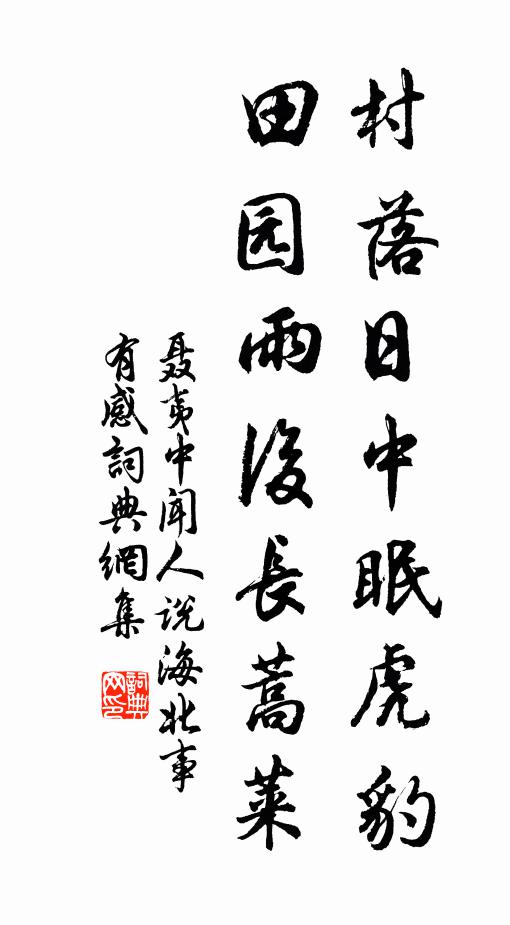 村落日中眠虎豹
田园雨後長蒿萊
聂夷中闻人说海北事
有感詞典網集
詞典网印